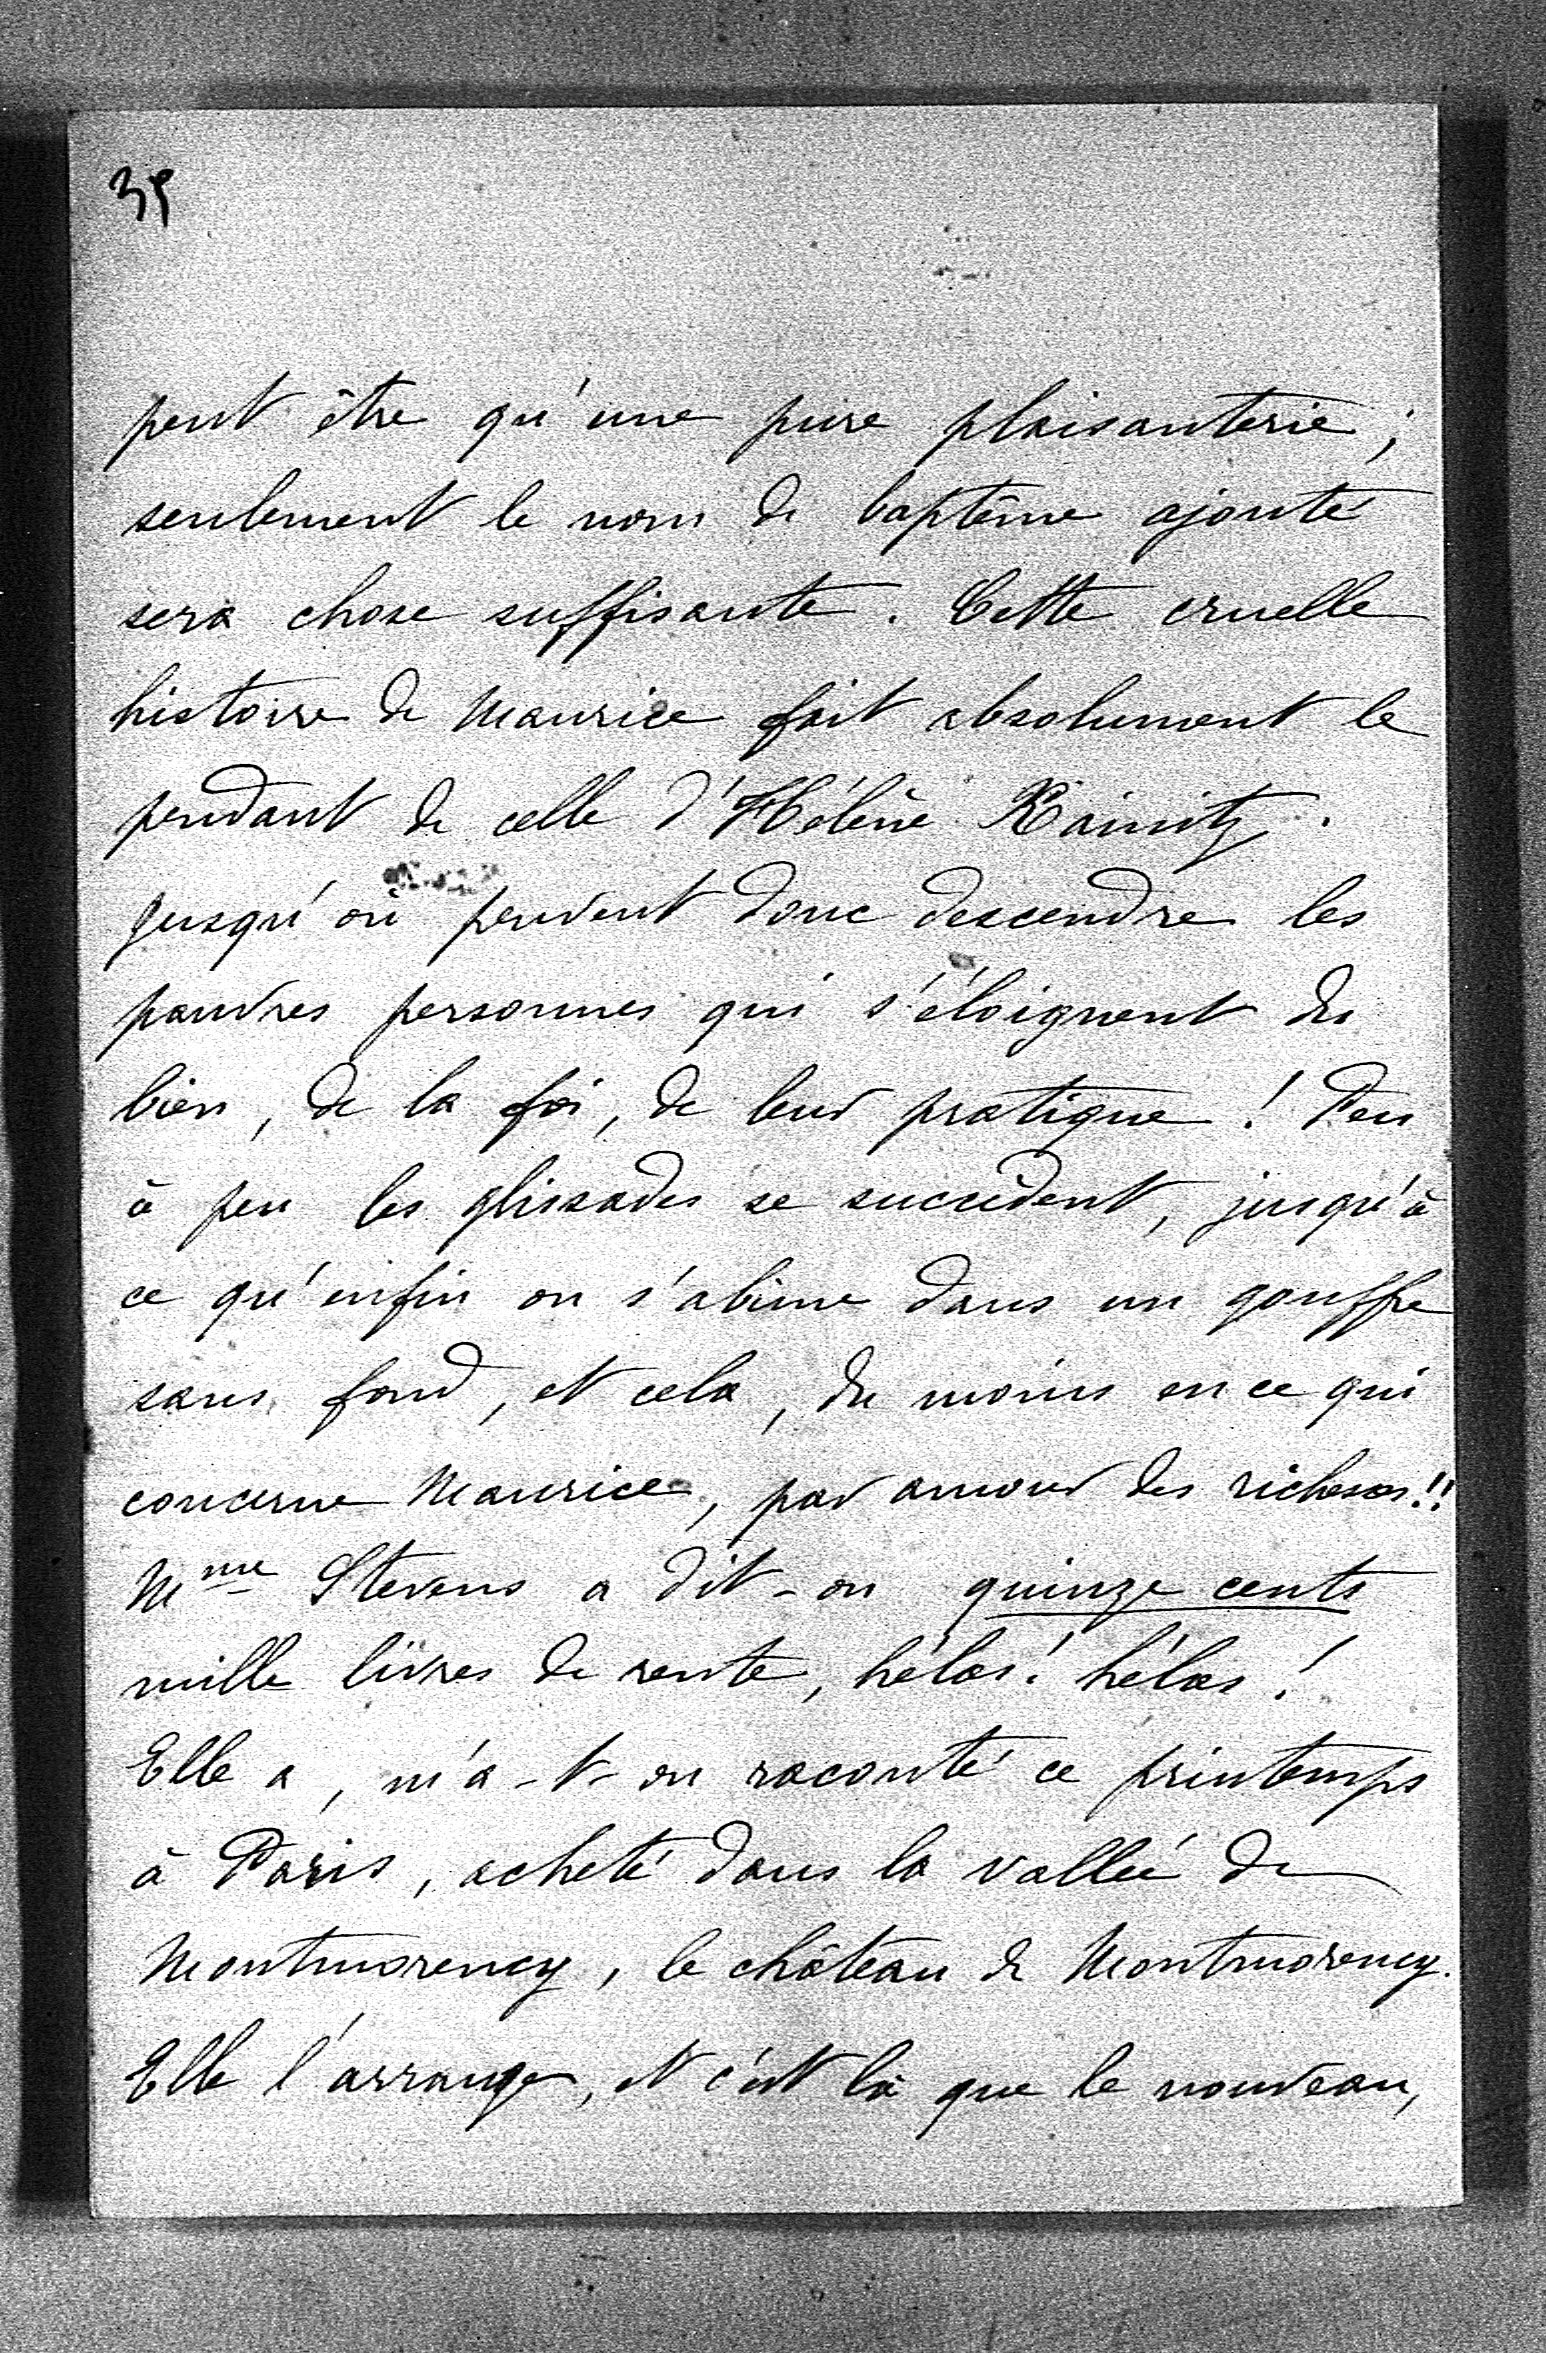 39
peut être qu'une pure plaisanterie;
seulement le nom de baptême ajouté
sera chose suffisante. Cette cruelle
histoire de Maurice fait absolument le
pendant de celle d'Hélène
Jusqu'où peuvent donc descendre les
pauvres personnes qui s'éloignent du
bien, de la foi, de leur pratique! Peu
à peu les glissades se succèdent, jusqu'à
ce qu'enfin on s'abîme dans un gouffre
sans fond, et cela, du moins en ce qui
concerne Maurice, par amour des richesses!!
Mme Stevens a dit-on quinze cents
mille livres de rente, hélas! hélas!
Elle a, m'a-t-on raconté ce printemps
à Paris, acheté dans la vallée de
Montmorency, le château de Montmorency.
Elle l'arrange, et c'est là que le nouveau,